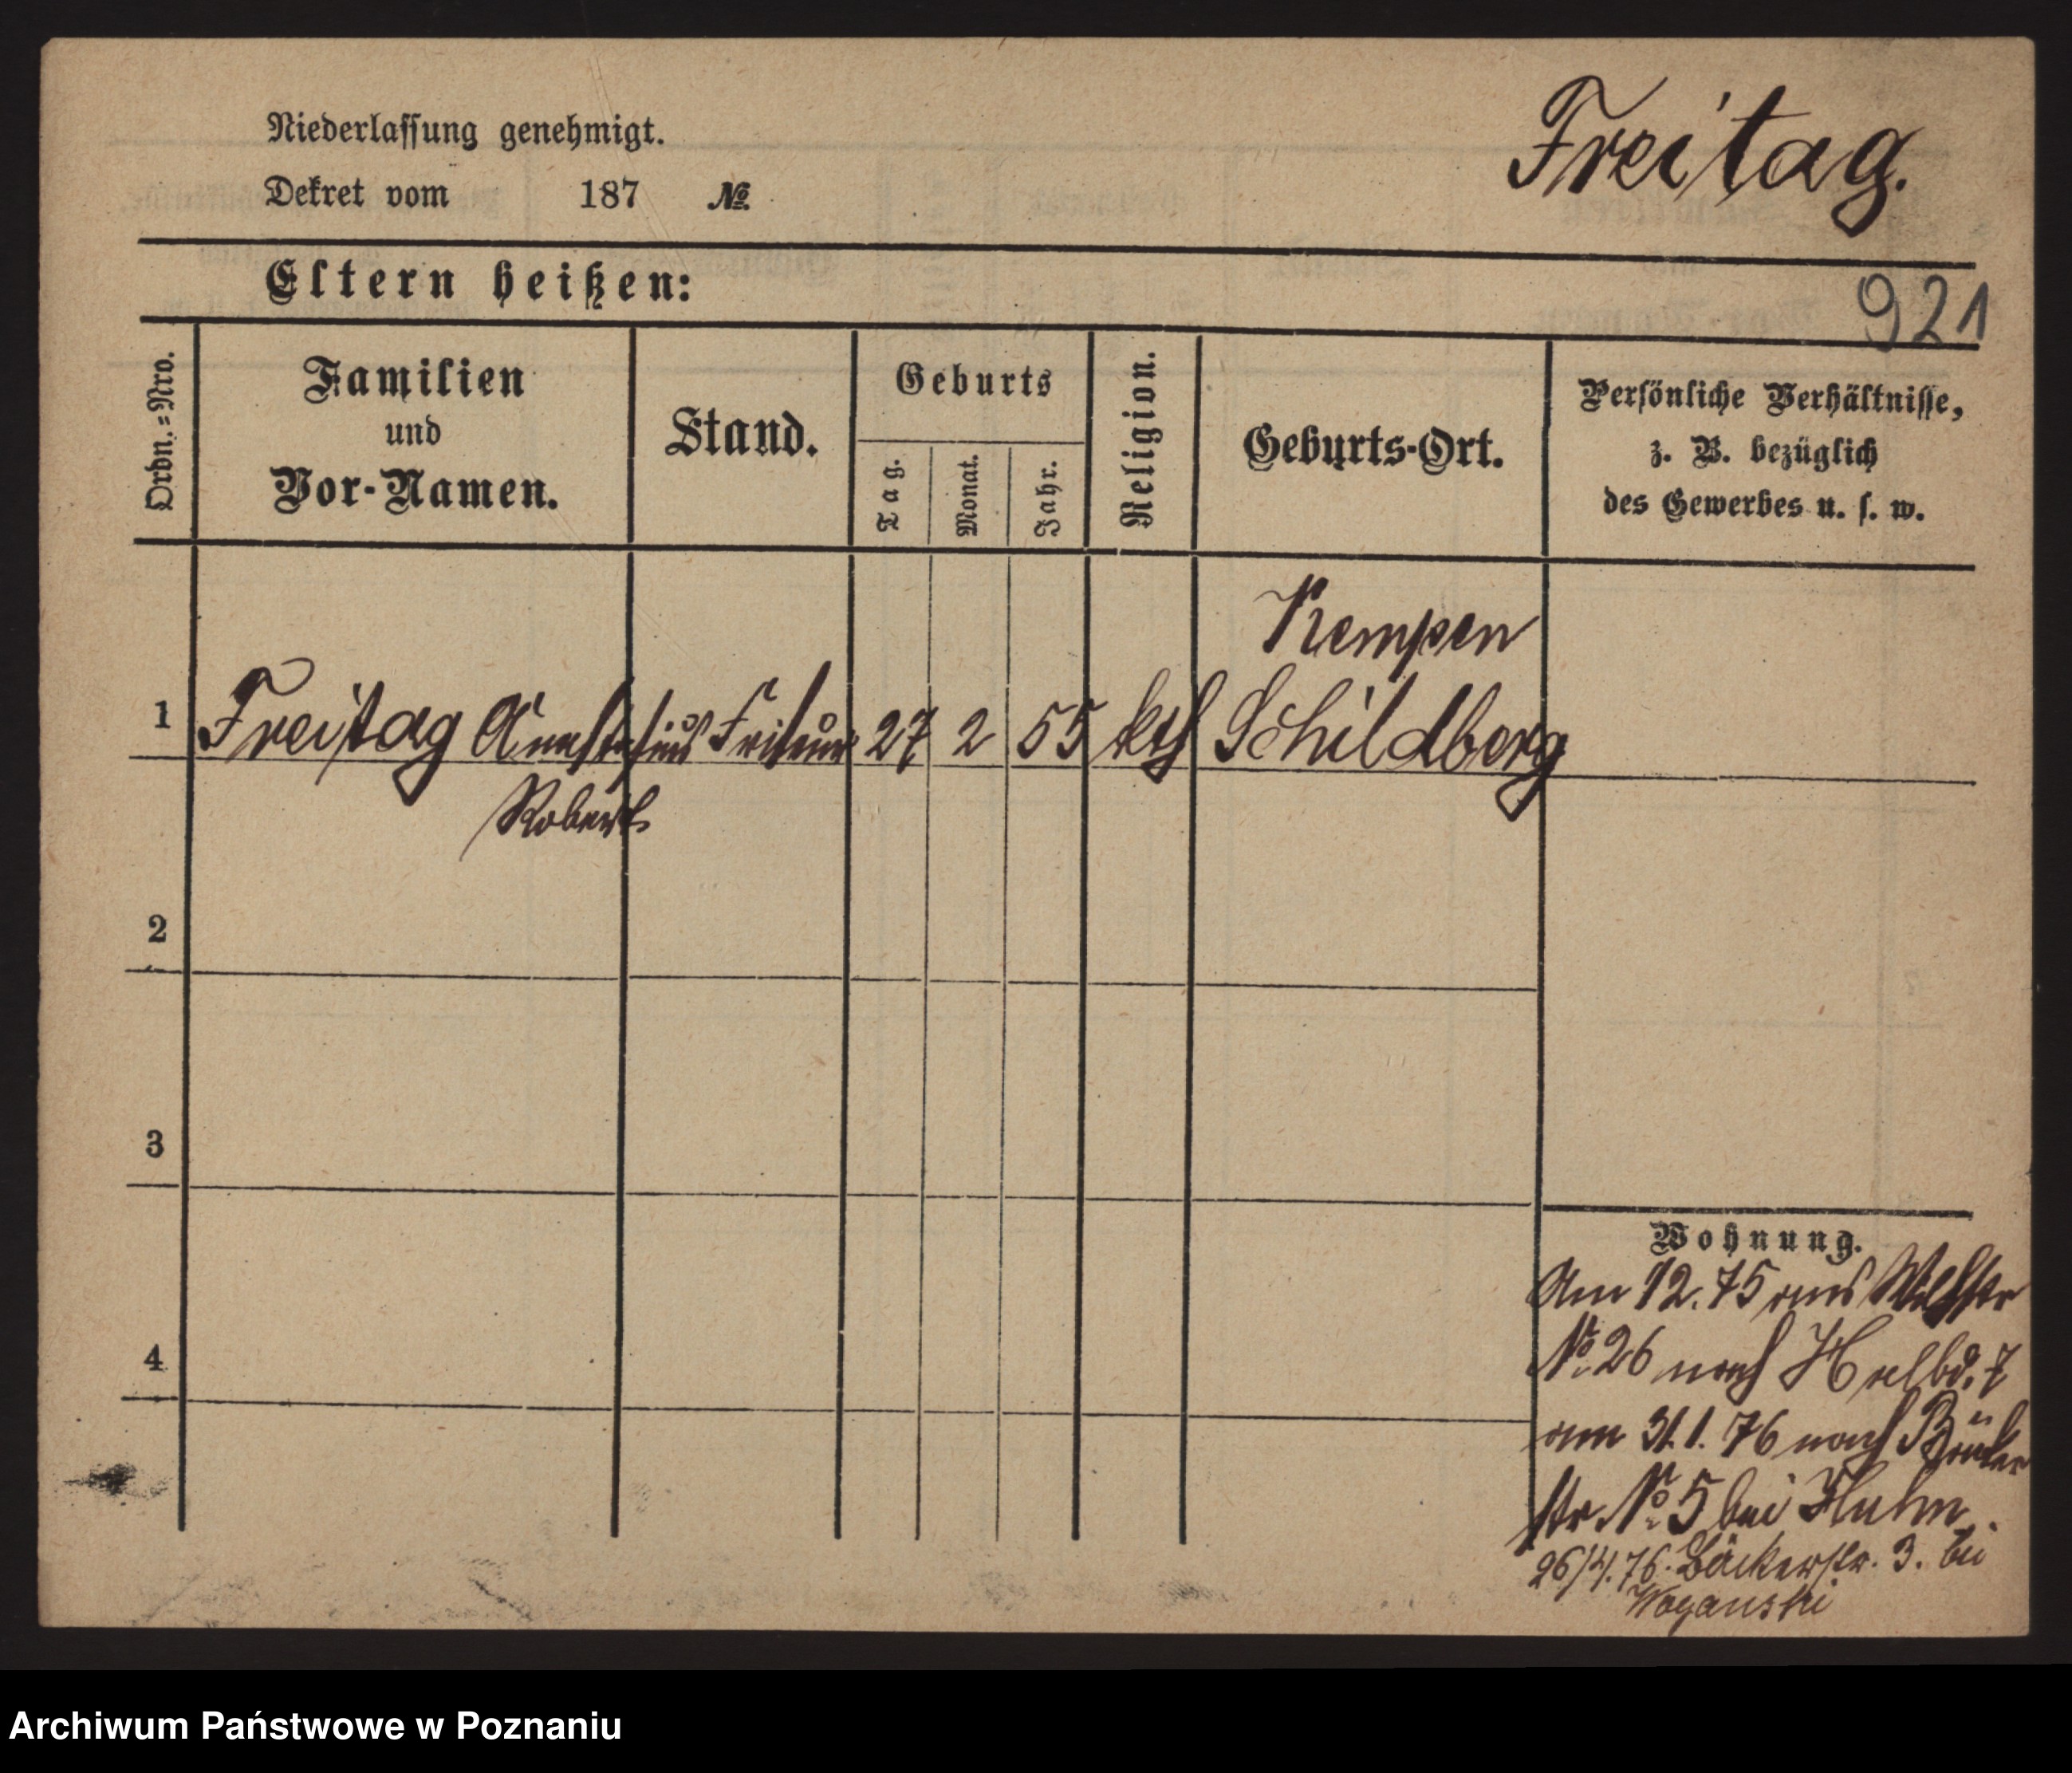 Niederlassung genehmigt.
Freitag.
Dekret vom 187 №
Eltern heißen:
921
Ordn.=Nro.
Familien
und
Vor-Namen.
Stand.
Geburts
Tag.
Monat.
Jahr.
Religion.
Geburts-Ort.
Persönliche Verhältnisse,
z. B. bezüglich
des Gewerbes u. s. w.
Kempen
1 Freitag Anastasius Friseur 27 2 55 kth Schildberg
Robert
2
3
4
Wohnung.
Am 12.75 aus
№ 26 nach Halbd. 7
am 31.1.76 nach
str № 5 bei Huhn.
26/4.76. Bäckerstr. 3. bei
Archiwum Państwowe w Poznaniu